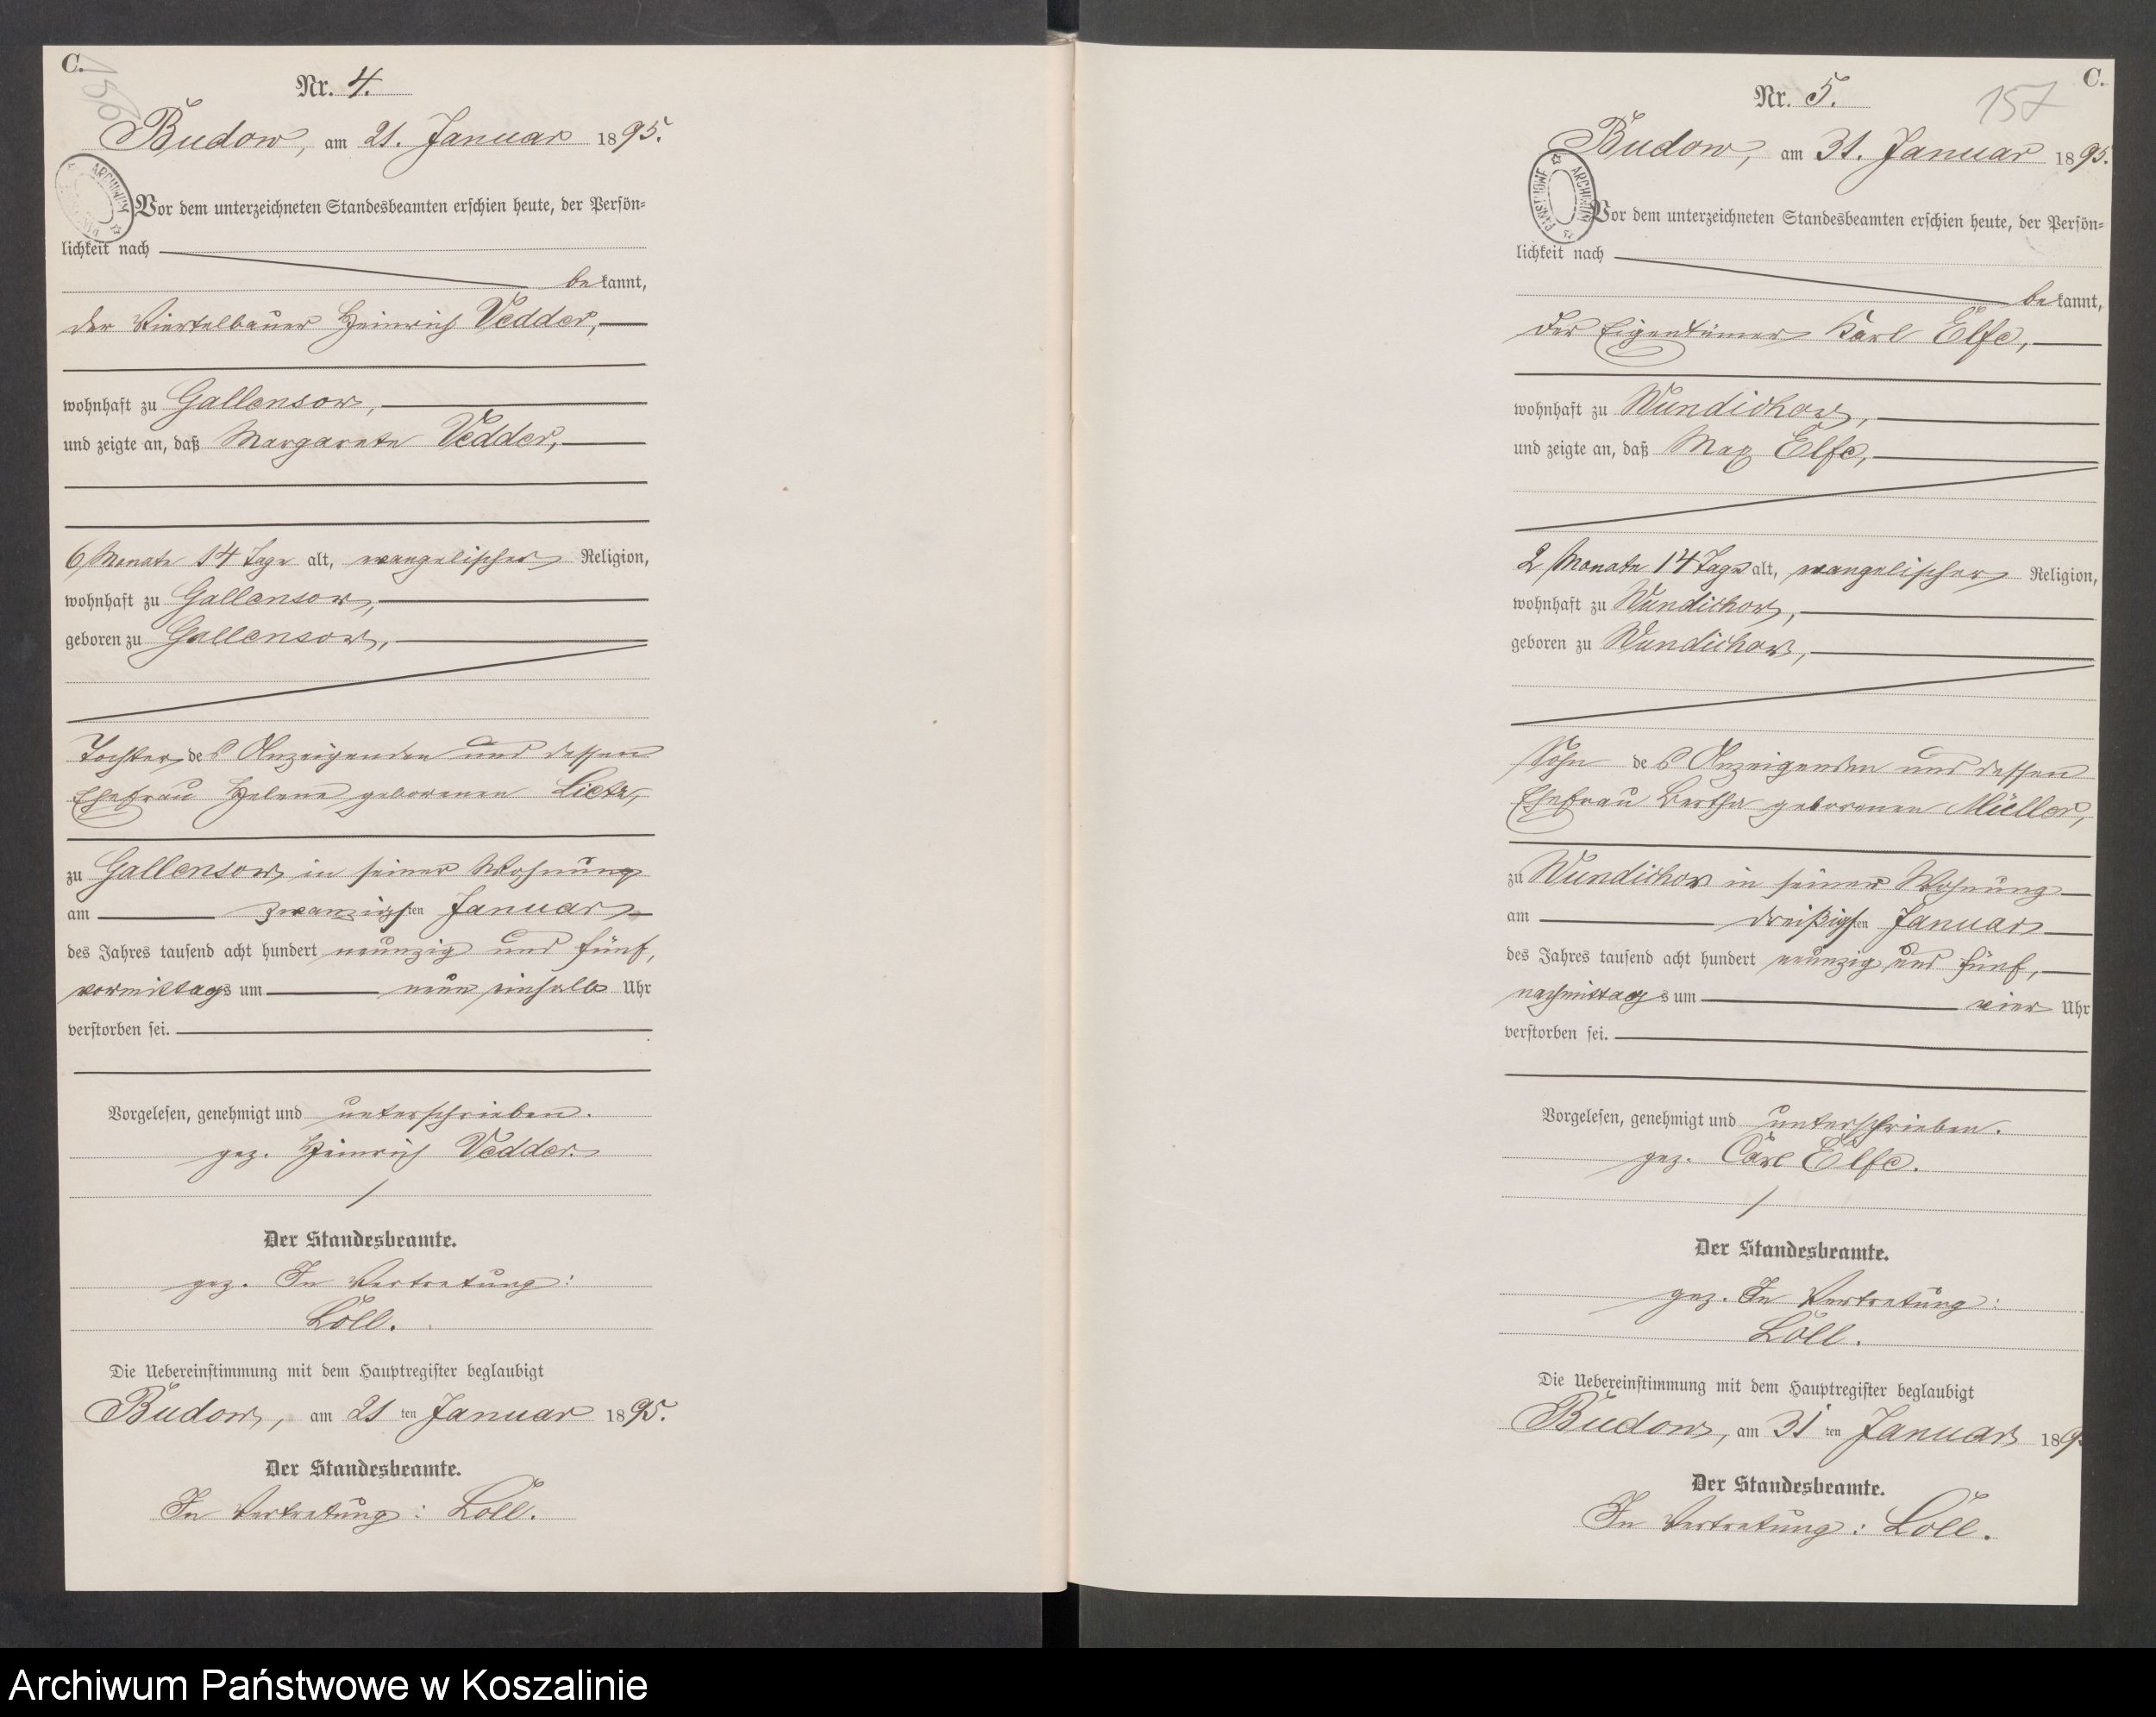 C.
156
Nr. 4.
Budow, am 21. Januar 1895.
ARCHIWUM
Vor dem unterzeichneten Standesbeamten erschien heute, der Persön-
lichkeit nach
bekannt,
der Viertelbauer Heinrich Vedder,
wohnhaft zu Gallensow,
und zeigte an, daß Margarete Vedder,
6 Monate 14 Tage alt, evangelischer Religion,
wohnhaft zu Gallensow,
geboren zu Gallensow,
Tochter des Anzeigenden und dessen
Ehefrau Helene geborenen Lietz,
zu Gallensow in seiner Wohnung
am zwanzigsten Januar
des Jahres tausend acht hundert neunzig und fünf,
vormittags um neun einhalb Uhr
verstorben sei.
Vorgelesen, genehmigt und unterschrieben.
gez. Heinrich Vedder.
Der Standesbeamte.
gez. In Vertretung:
Löll.
Die Uebereinstimmung mit dem Hauptregister beglaubigt
Budow, am 21 ten Januar 1895.
Der Standesbeamte.
In Vertretung: Löll.
C.
157
Nr. 5.
Budow, am 31. Januar 1895.
ARCHIWUM PAŃSTWOWE
Vor dem unterzeichneten Standesbeamten erschien heute, der Persön-
lichkeit nach
bekannt,
der Eigentümer Karl Elfe,
wohnhaft zu Wundichow,
und zeigte an, daß Max Elfe,
2 Monate 14 Tage alt, evangelischer Religion,
wohnhaft zu Wundichow,
geboren zu Wundichow,
Sohn des Anzeigenden und dessen
Ehefrau Bertha geborenen Müller,
zu Wundichow in seiner Wohnung
am dreißigsten Januar
des Jahres tausend acht hundert neunzig und fünf,
nachmittags um vier Uhr
verstorben sei.
Vorgelesen, genehmigt und unterschrieben.
gez. Carl Elfe.
Der Standesbeamte.
gez. In Vertretung:
Löll.
Die Uebereinstimmung mit dem Hauptregister beglaubigt
Budow, am 31 ten Januar 189
Der Standesbeamte.
In Vertretung: Löll.
Archiwum Państwowe w Koszalinie